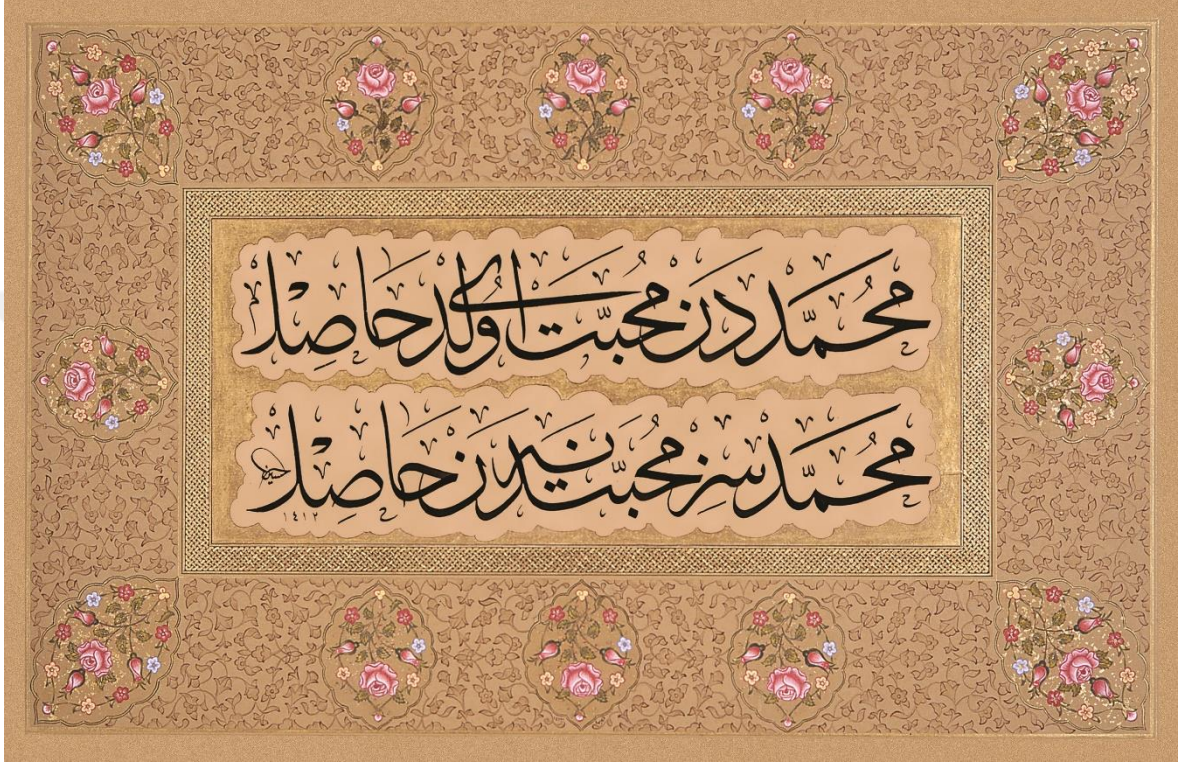 محمّددن محبّت اولدی حاصل
محمّدسز محبّتدن نه حاصل
١٤١٢